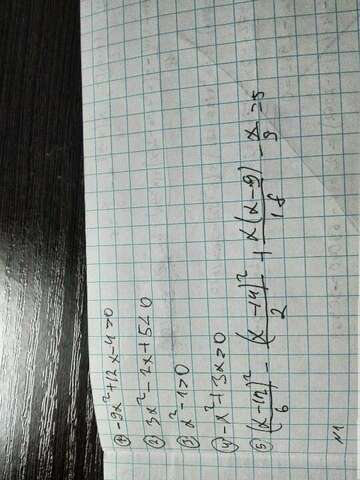 1) -9x²+12x-4>0
2) 3x²-2x+5<0
3) x²-1>0
4) -x²+3x≥0
5) (x-12)²/6 - (x-14)²/2 + x(x-9)/18 - x/9 =5
N1